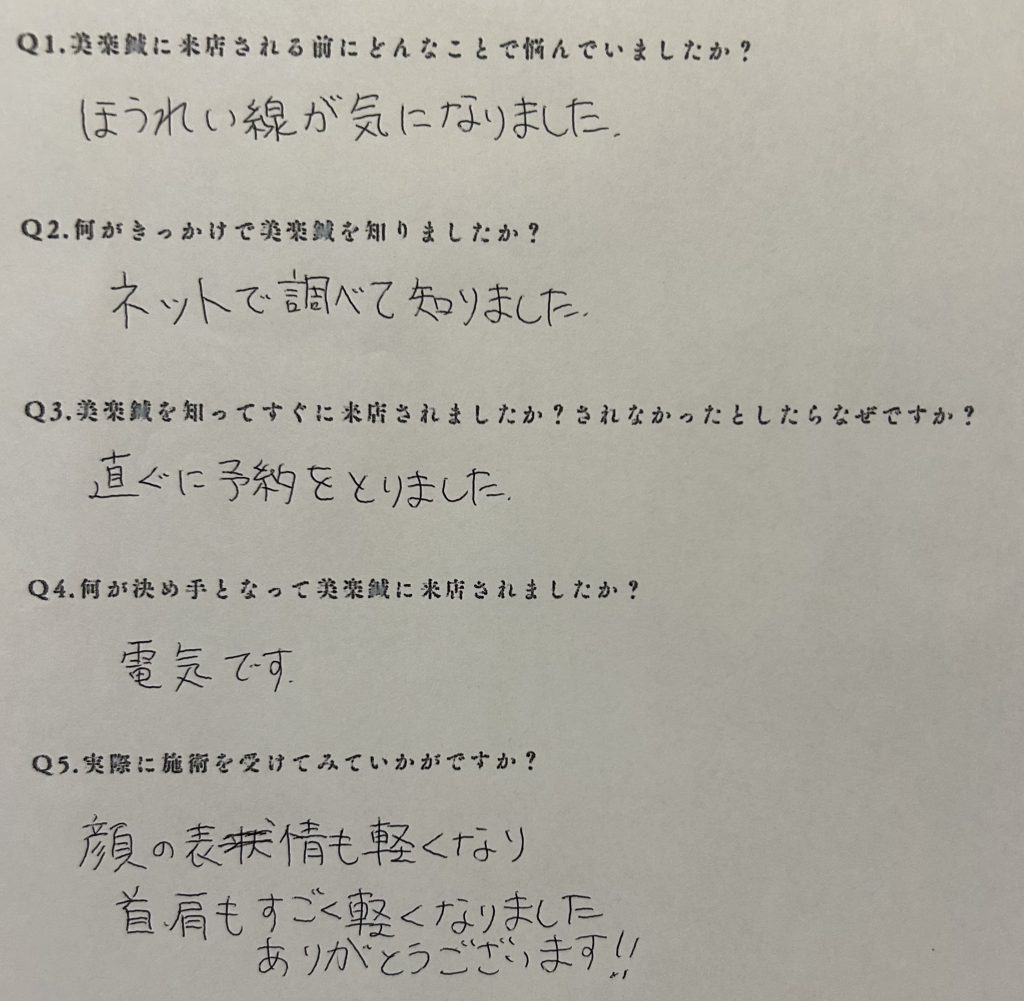 Q1.美楽鍼に来店される前にどんなことで悩んでいましたか？
ほうれい線が気になりました.
Q2.何がきっかけで美楽鍼を知りましたか？
ネットで調べて知りました.
Q3.美楽鍼を知ってすぐに来店されましたか？されなかったとしたらなぜですか？
直ぐに予約をとりました.
Q4.何が決め手となって美楽鍼に来店されましたか？
電気です.
Q5.実際に施術を受けてみていかがですか？
顔の表情も軽くなり
首.肩もすごく軽くなりました
ありがとうございます!!